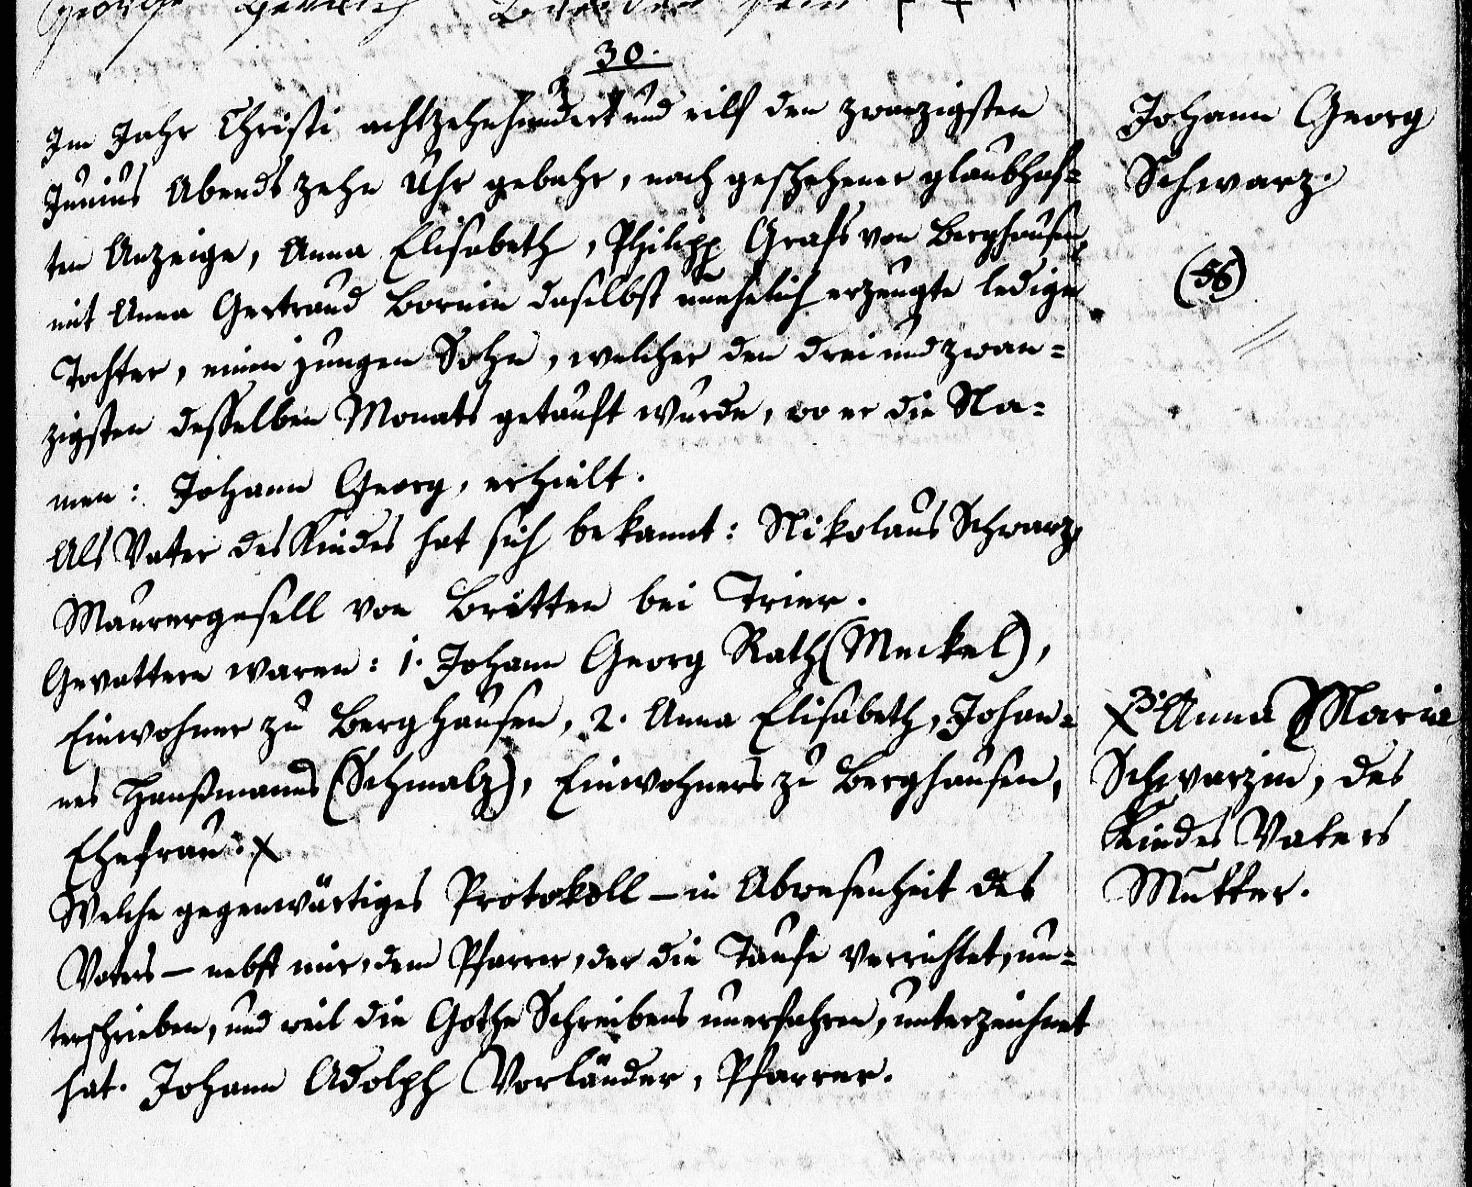 30.
Im Jahr Christi achtzehnhundert und eilf den zwanzigsten
Junius Abends zehn Uhr gebahr, nach geschehener glaubhaf=
ten Anzeige, Anna Elisabeth, Philipp Grafs von Berghausen,
mit Anna Gertraud Bornin daselbst unehelich erzeugte ledige
Tochter, einen jungen Sohn, welcher den drei und zwan=
zigsten desselben Monats getauft wurde, wo er die Na=
men: Johann Georg, erhielt.
Als Vater des Kindes hat sich bekannt: Nikolaus Schwarz,
Maurergesell von Britten bei Trier.
Gevattern waren: 1. Johann Georg Rath (Meckel),
Einwohner zu Berghausen, 2. Anna Elisabeth, Johan=
nes Hanßmanns (Schmalz), Einwohners zu Berghausen,
Ehefrau: x
Welche gegenwärtiges Protokoll — in Abwesenheit des
Vaters — nebst mir, dem Pfarrer, der die Taufe verrichtet, un=
terschrieben, und weil die Gothe Schreibens unerfahren, unterzeichnet
hat. Johann Adolph Vorländer, Pfarrer.
Johann Georg
Schwarz.
(56)
x 3. Anna Maria
Schwarzin, des
Kindes Vaters
Mutter.